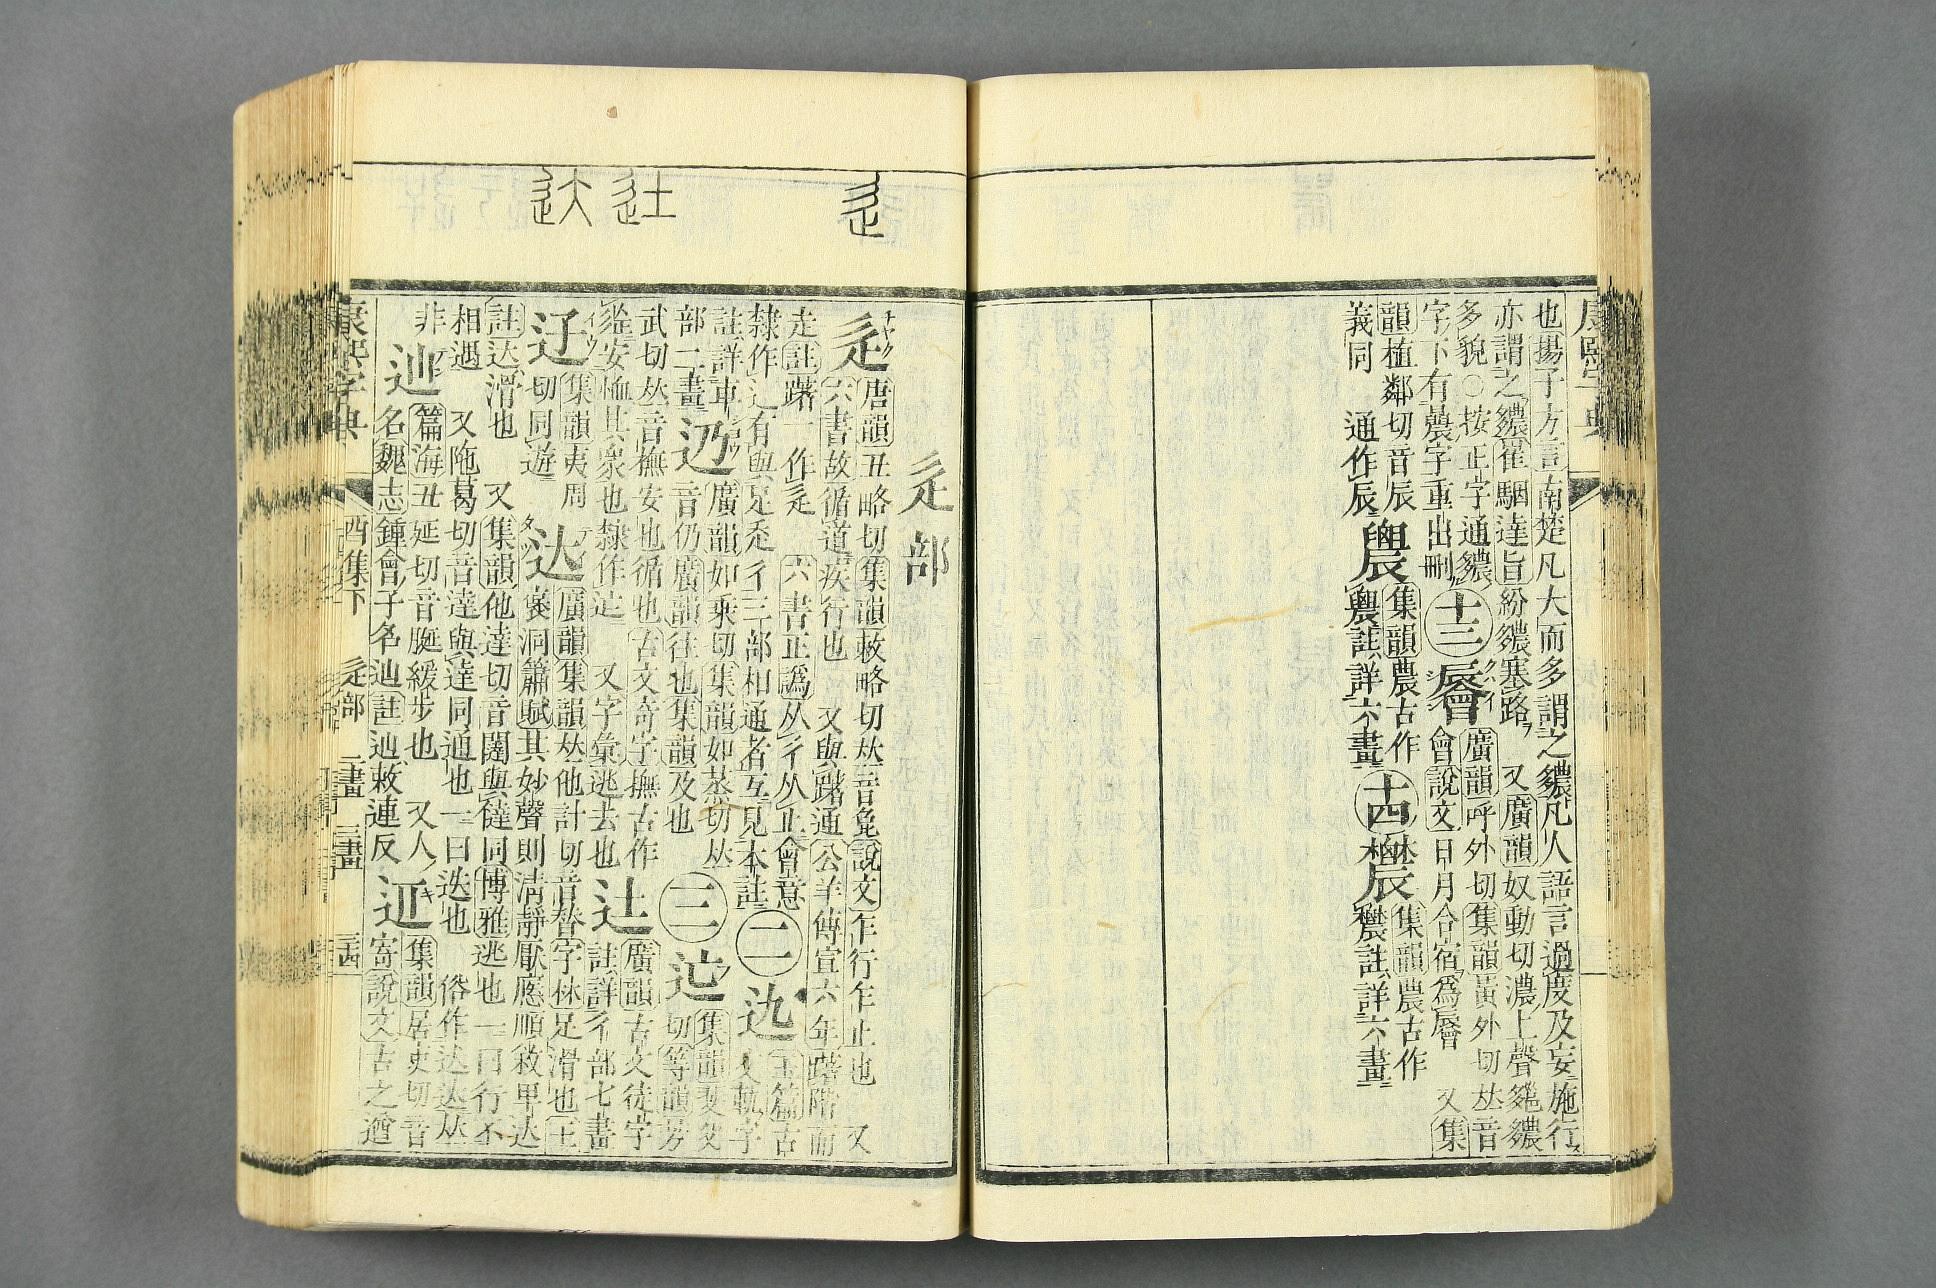 也揚子方言南楚凡大而多謂之䢉凡人語言過度及妄施行
亦謂之䢉崔駰達旨紛䢉塞路 又廣韻奴動切濃上聲
多貌○按正字通䢉
字下有農字重出刪
十三
廣韻呼外切集韻黃外切𠀤音
會說文日月合宿為 又集
韻植鄰切音辰
義同 通作辰
集韻農古作
註詳六畫
十四
集韻農古作
註詳六畫
辵部
辵
唐韻丑略切集韻敕略切𠀤音㲋說文乍行乍止也 又
六書故循道疾行也 又與躇通公羊傳宣六年躇階而
走註躇一作辵 六書正譌从彳从止會意
隸作辶有與足走彳三部相通者互見本註
二
䢏
玉篇古
文軌字
註詳車
部二畫
辸
廣韻如乘切集韻如蒸切𠀤
音仍廣韻往也集韻及也
三
集韻斐父
切等韻芳
武切𠀤音撫安也循也古文奇字撫古作
从安恤其衆也隸作 又字彙逃去也
辻
廣韻古文徒字
註詳彳部七畫
辸
集韻夷周
切同遊
达
廣韻集韻𠀤他計切音替字林足滑也王
褒洞簫賦其妙聲則清靜厭㥷順敘卑达
註达滑也 又集韻他達切音闥與撻同博雅逃也一曰行不
相遇 又陁葛切音達與達同通也一曰迭也 俗作达迏𠀤
非
辿
篇海丑延切音脠緩步也 又人
名魏志鍾會子名辿註辿敕連反
䢋
集韻居吏切音
寄說文古之遒
康熙字典
酉集下 辵部 二畫 三畫
三四